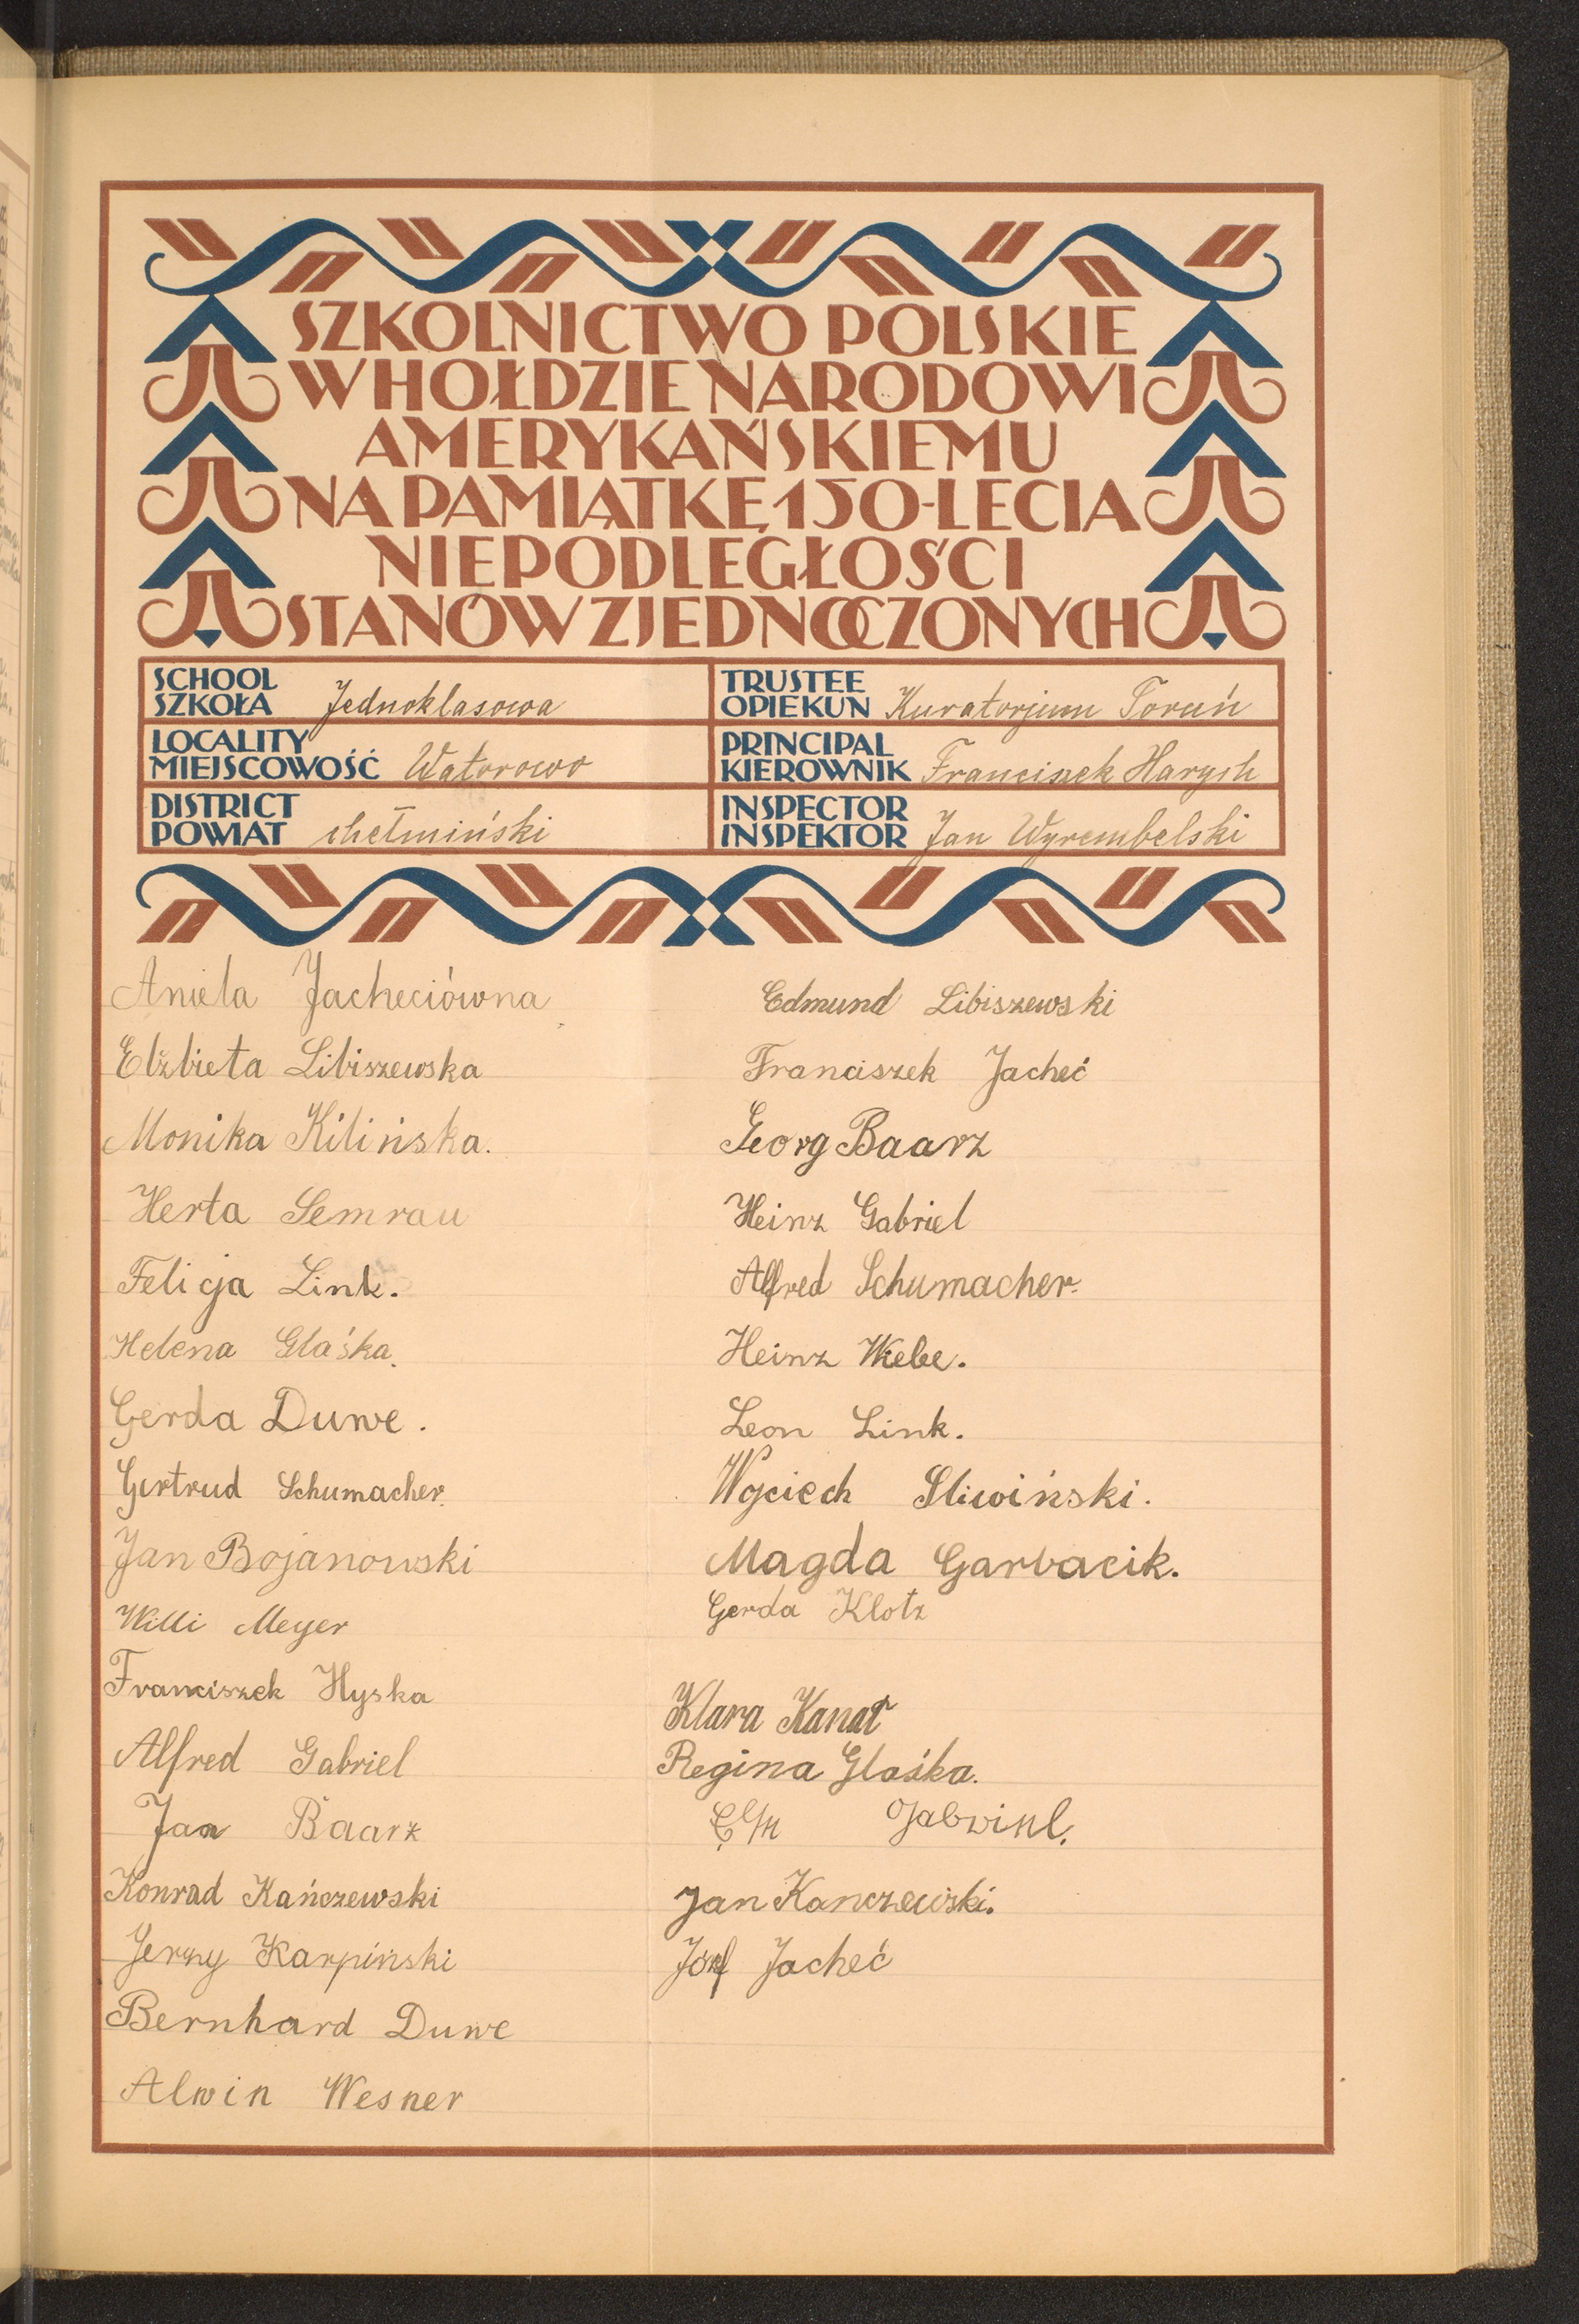 SZKOLNICTWO POLSKIE
W HOŁDZIE NARODOWI
AMERYKAŃSKIEMU
NA PAMIĄTKĘ 150-LECIA
NIEPODLEGŁOŚCI
STANÓW ZJEDNOCZONYCH
SCHOOL
SZKOŁA Jednoklasowa
TRUSTEE
OPIEKUN Kuratorjum Toruń
LOCALITY
MIEJSCOWOŚĆ Watorowo
PRINCIPAL
KIEROWNIK Franciszek Harych
DISTRICT
POWIAT chełmiński
INSPECTOR
INSPEKTOR Jan Wyrembelski
Aniela Jacheciówna
Elżbieta Libiszewska
Monika Kilińska.
Herta Semrau
Felicja Link.
Helena Glaśka.
Gerda Duwe.
Gertrud Schumacher.
Jan Bojanowski
Willi Meyer
Franciszek Hyska
Alfred Gabriel
Jan Baarz
Konrad Kańczewski
Jerzy Karpiński
Bernhard Duwe
Alwin Wesner
Edmund Libiszewski
Franciszek Jacheć
Georg Baarz
Heinz Gabriel
Alfred Schumacher.
Heinz Wiebe.
Leon Link.
Wojciech Sliwiński.
Magda Garbacik.
Gerda Klotz
Klara Kanat
Regina Glaśka.
Jan Kanczewiski.
Józef Jacheć